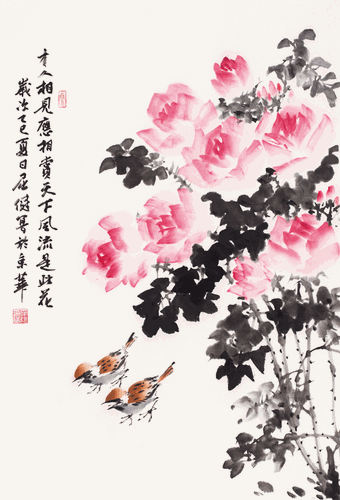 才人相见應相賞天下風流是此花
歲次乙巳夏日屈健寫於京華